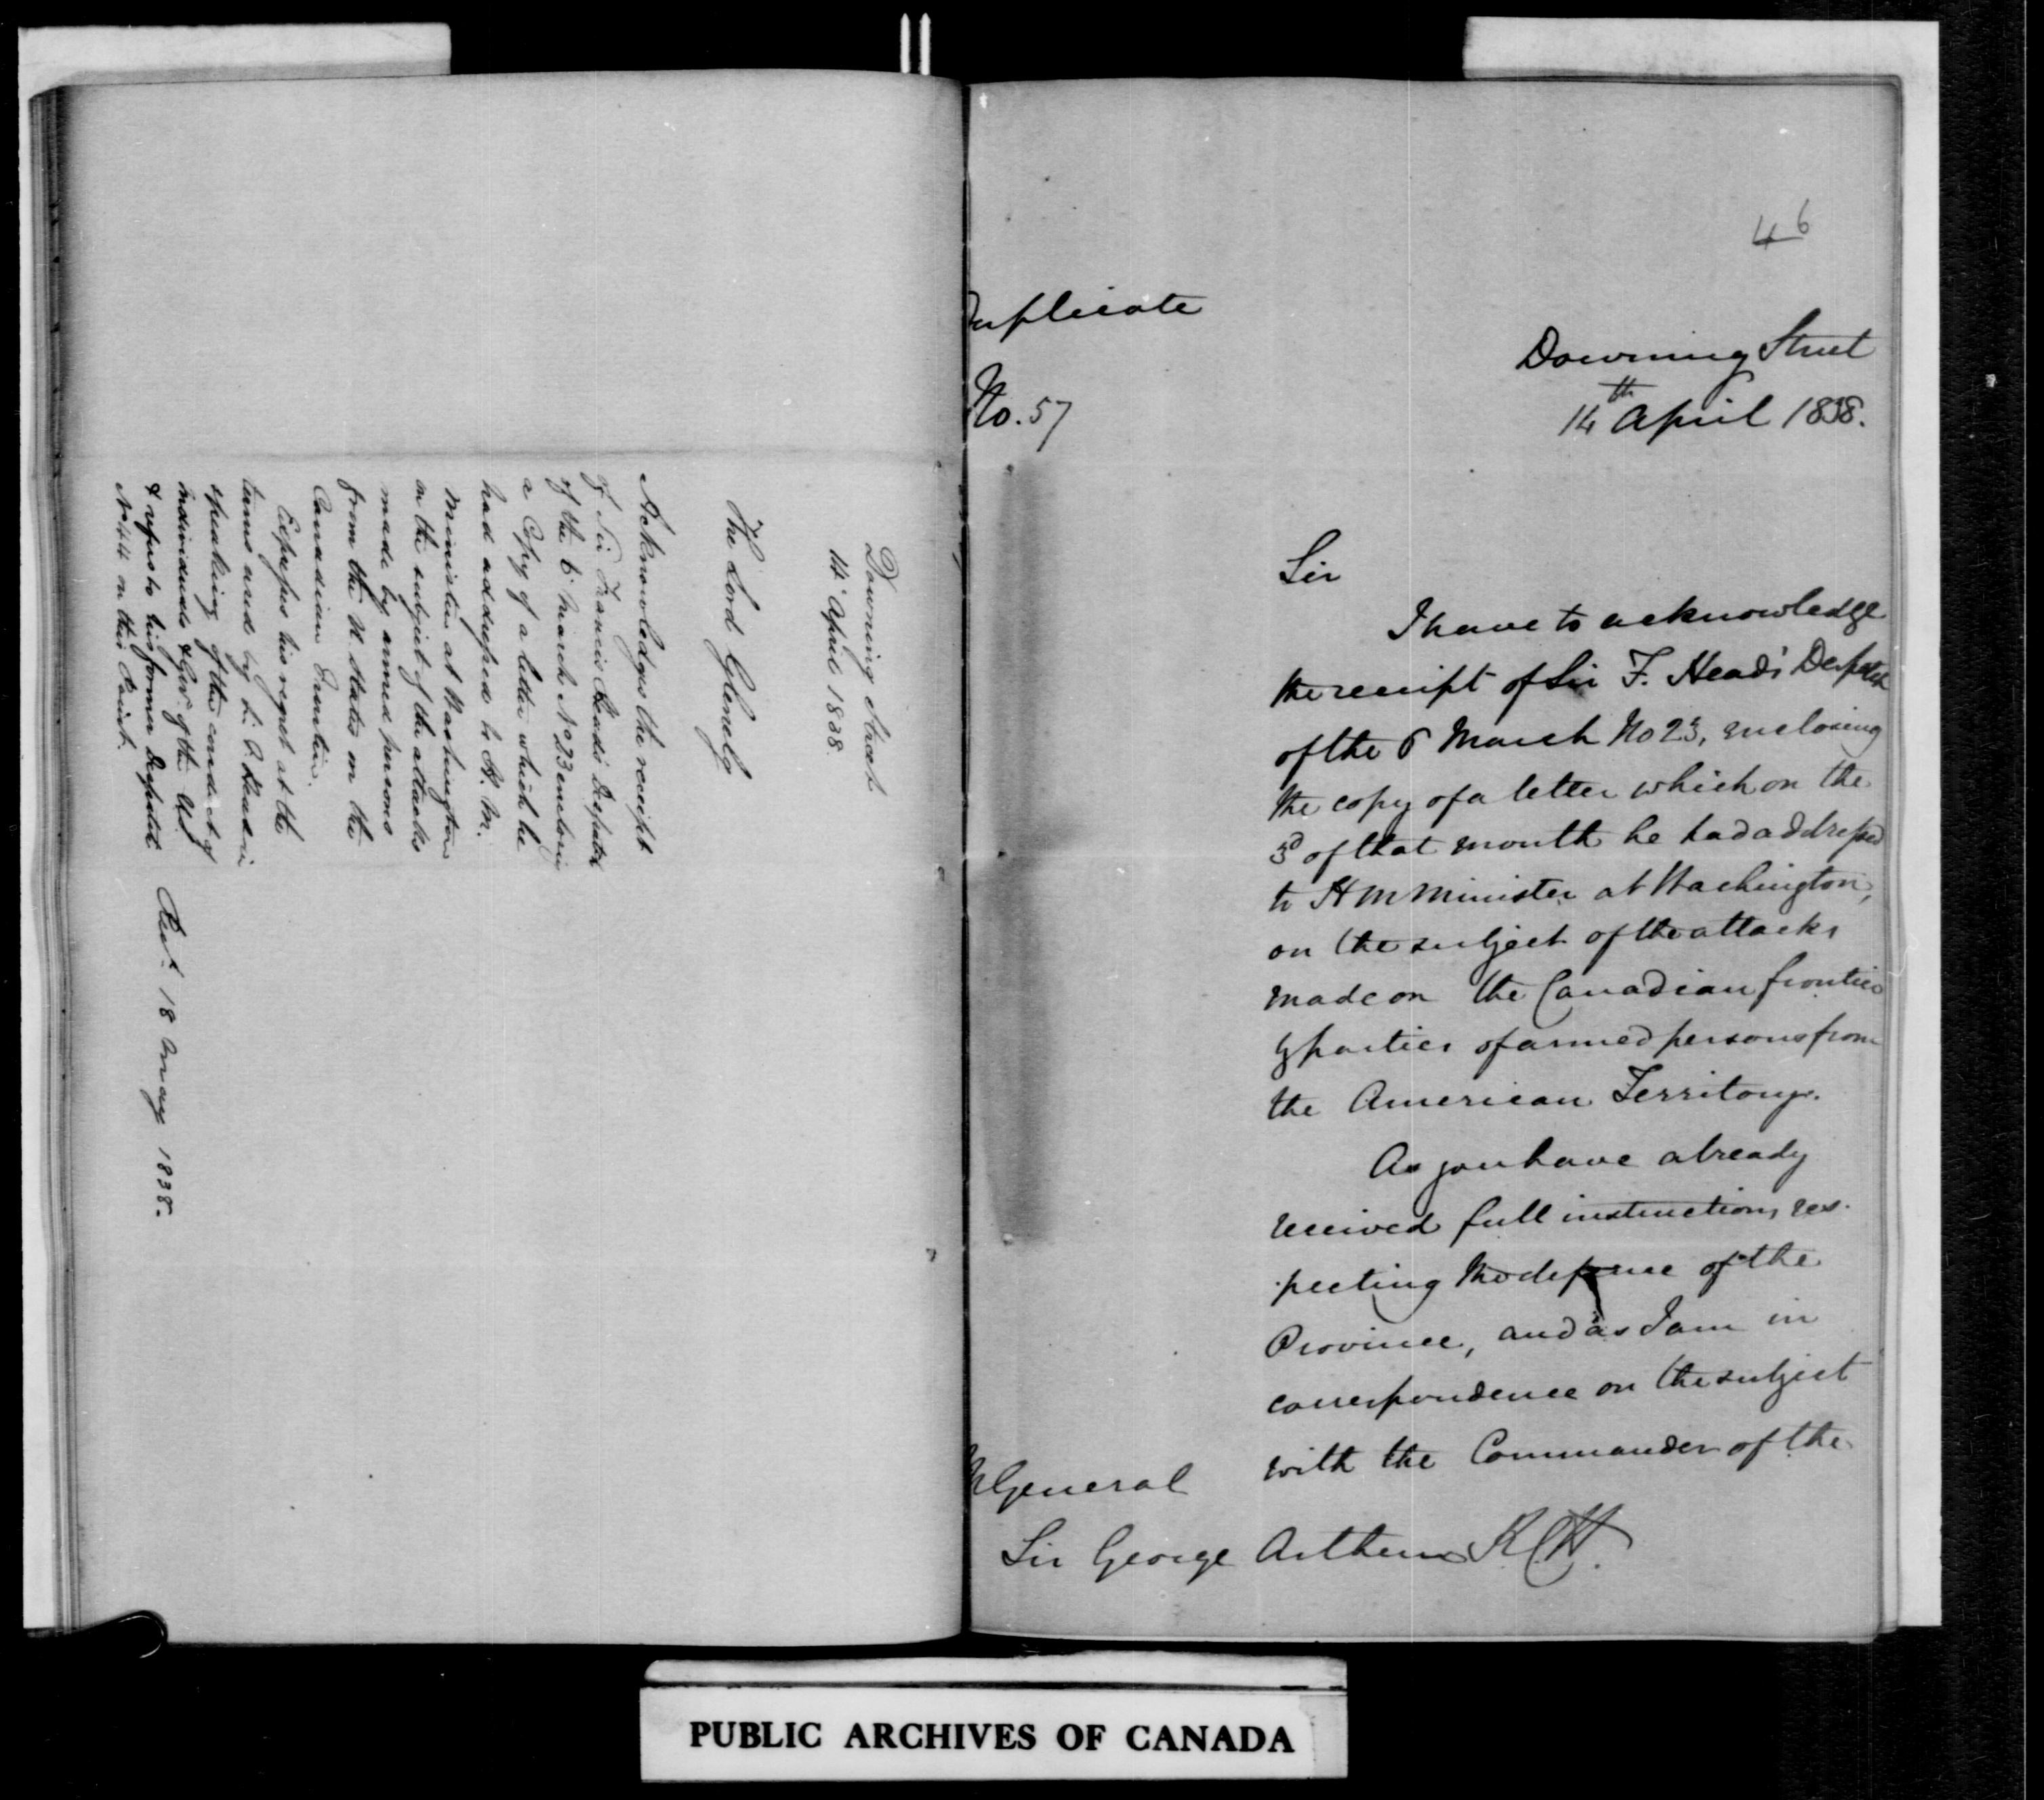 Downing Street
14 April 1838.
The Lord Glenelg
Acknowledges the receipt
of Sir Francis Head's Despatch
of the 6. March No 23 enclosing
a Copy of a letter which he
had addressed to H. M.
Minister at Washington
on the subject of the attacks
made by armed persons
from the U States on the
Canadian Frontier.
Expresses his regret at the
terms used by Sir F. Head in
speaking of the conduct of
individuals & Gov. of the US.
& refers to his former Despatch
No 44 on this Point.
Rec. 18 May 1838.
46
Duplicate
No. 57
Downing Street
14th April 1838.
Sir
I have to acknowledge
the receipt of Sir F. Head's Despatch
of the 6 March No 23, enclosing
the copy of a letter which on the
3d of that month he had addressed
to H M Minister at Washington,
on the subject of the attacks
made on the Canadian frontier
by parties of armed persons from
the American Territory.
As you have already
received full instructions res-
pecting the defence of the
Province, and as I am in
correspondence on the subject
with the Commander of the
M General
Sir George Arthur KCH.
PUBLIC ARCHIVES OF CANADA